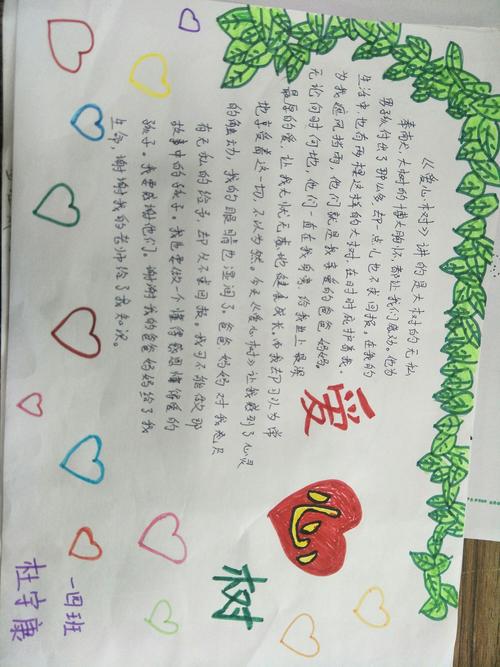 爱
心
树
《爱心树》讲的是大树的无私
奉献,大树的博大胸怀,都让我们感动。他为
男孩付出了那么多,却一点儿也不求回报。在我的
生活中也有两棵这样的大树,在时时庇护着我,
为我遮风挡雨,他们就是我亲爱的爸爸妈妈。
无论何时何地,他们一直在我身旁,给我世上最深
最厚的爱,让我无忧无虑地健康成长,而我却习以为常
地享受着这一切,不以为然。今天《爱心树》让我感到了心灵
的触动,我的眼睛也湿润了。爸爸妈妈对我也只
有无私的给予,却从不求回报。我可不能做那
故事中的孩子。我也要做一个懂得感恩懂得爱的
孩子。我要感谢他们。谢谢我的爸爸妈妈给了我
生命,谢谢我的老师给了我知识。
一四班
杜宇康